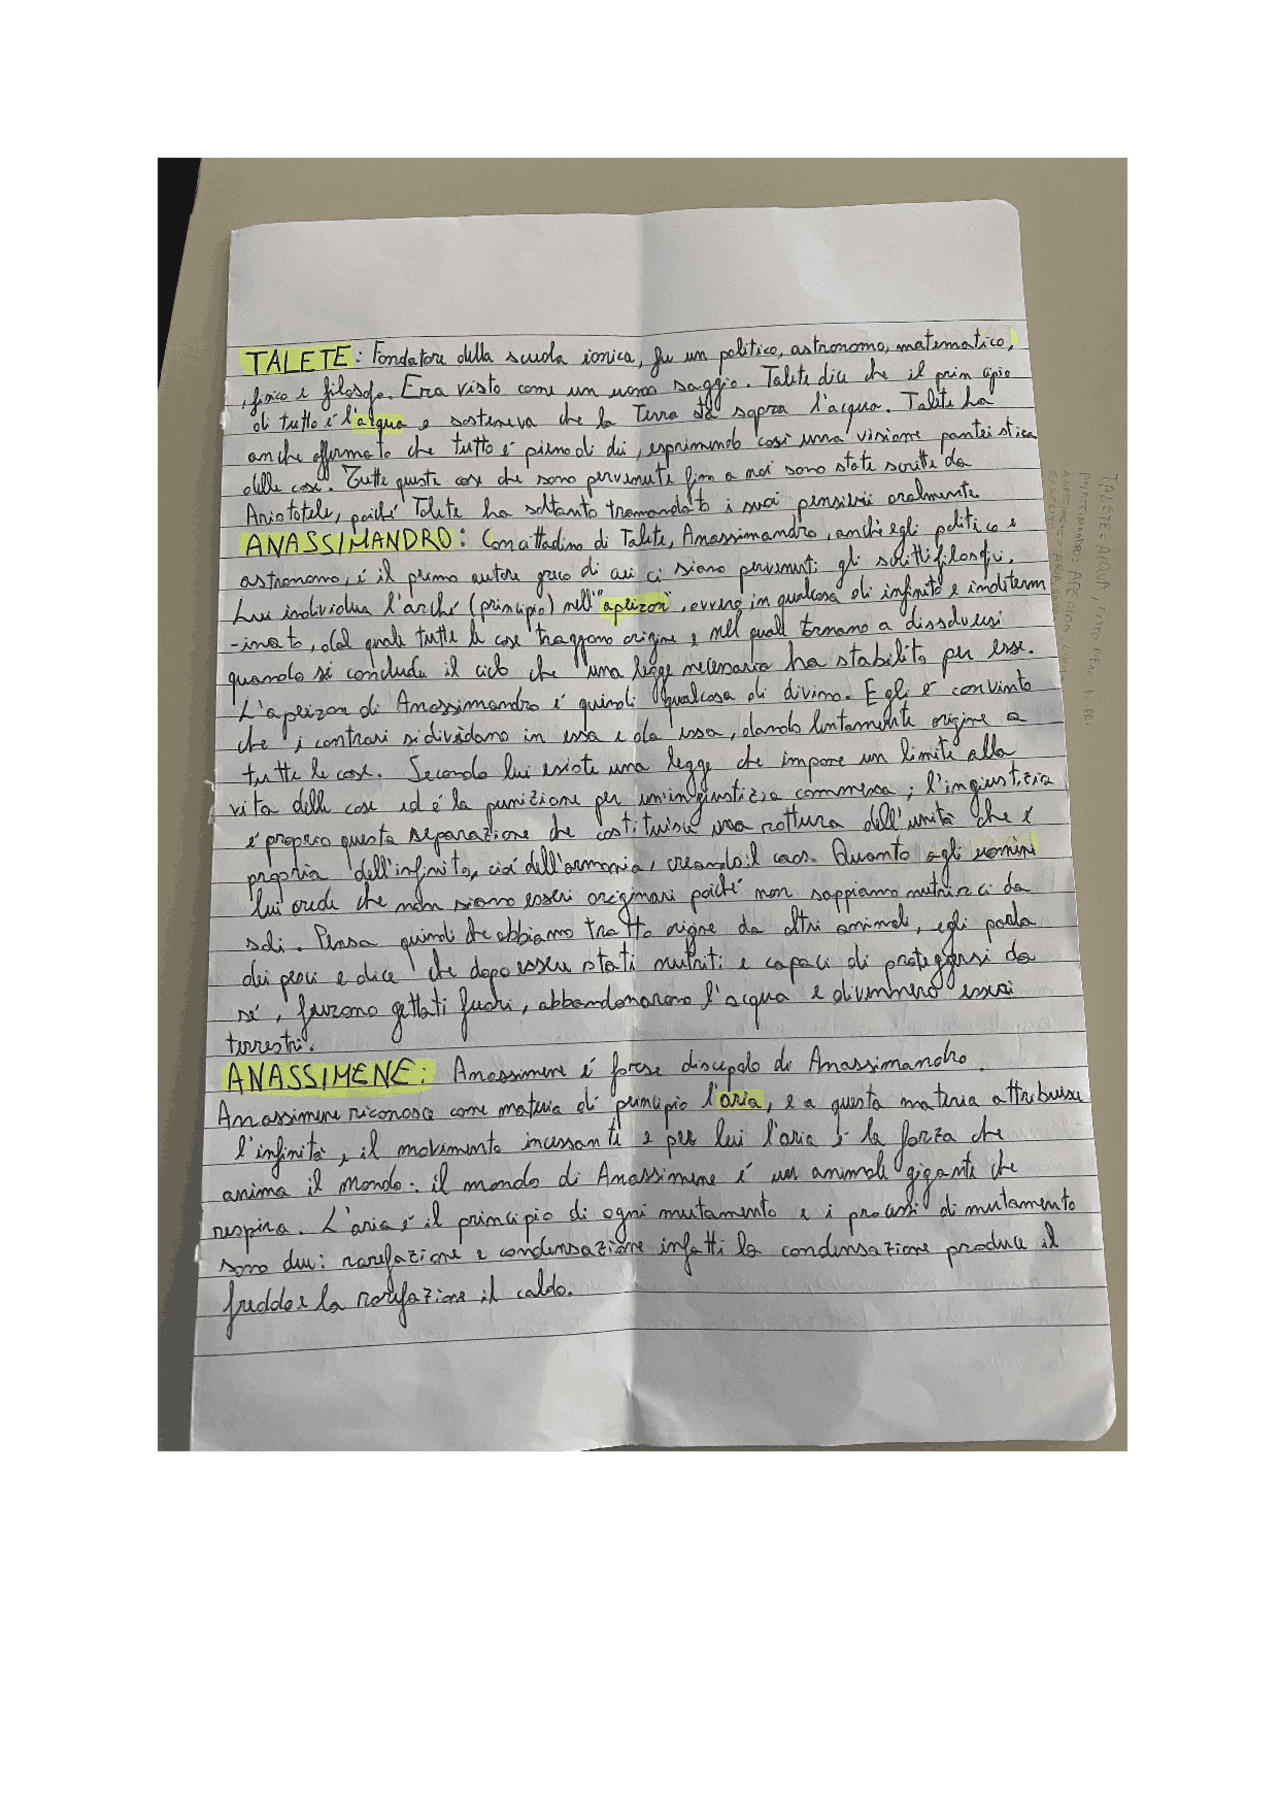 TALETE: Fondatore della scuola ionica, fu un politico, astronomo, matematico,
fisico e filosofo. Era visto come un uomo saggio. Talete dice che il principio
di tutto é l'acqua e sosteneva che la Terra sta sopra l'acqua. Talete ha
anche affermato che tutto é pieno di dei, esprimendo cosí una visione panteistica
delle cose. Tutte queste cose che sono pervenute fino a noi sono state scritte da
Aristotele, poiché Talete ha soltanto tramandato i suoi pensieri oralmente
ANASSIMANDRO: Concittadino di Talete, Anassimandro, anché egli politico e
astronomo, é il primo autore greco di cui ci siano pervenuti gli scritti filosofici.
Lui individua l'arché (principio) nell'"apeizon", ovvero in qualcosa di infinito e indeterm
-inato, dal quale tutte le cose traggono origine e nel quale tornano a dissolversi
quando si conclude il ciclo che una legge necessaria ha stabilito per esse.
L'apeizon di Anassimandro é quindi qualcosa di divino. Egli é convinto
che i contrari si dividano in essa e da essa, dando lentamente origine a
tutte le cose. Secondo lui esiste una legge che impone un limite alla
vita delle cose ed é la punizione per un'ingiustizia commessa; l'ingiustizia
é proprio questa separazione che costituisce una rottura dell'unitá che é
propria dell'infinito, cioé dell'armonia, creando il caos. Quanto agli uomini
lui crede che non siano esseri originari poiché non sappiamo nutrirci da
soli. Pensa quindi che abbiamo tratto origine da altri animali, egli parla
dei pesci e dice che dopo essere stati nutriti e capaci di proteggersi da
sé, furono gettati fuori, abbandonarono l'acqua e divennero esseri
terrestri.
ANASSIMENE: Anassimene é forse discepolo di Anassimandro.
Anassimene riconosce come materia di principio l'aria, e a questa materia attribuisce
l'infinitá e il movimento incessante e per lui l'aria é la forza che
anima il mondo: il mondo di Anassimene é un animale gigante che
respira. L'aria é il principio di ogni mutamento e i processi di mutamento
sono due: rarefazione e condensazione infatti la condensazione produce il
freddo e la rarefazione il caldo.
TALETE = ACQUA, TUTTO PIENO DI DEI